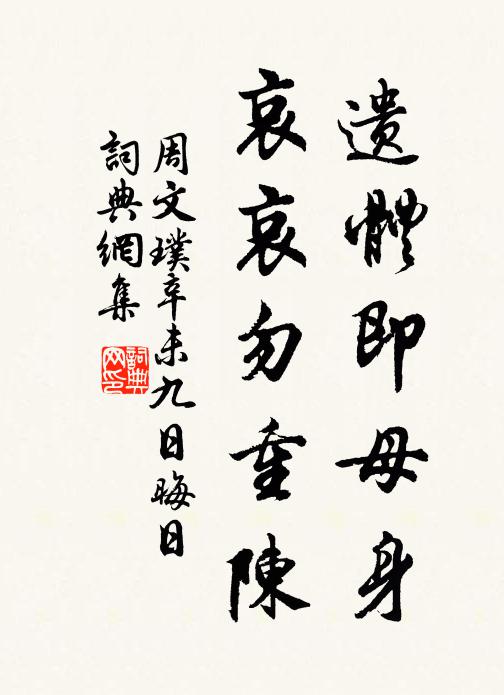 遺體即母身
哀哀勿重陳
周文璞辛未九日晦日
詞典網集
詞典网印